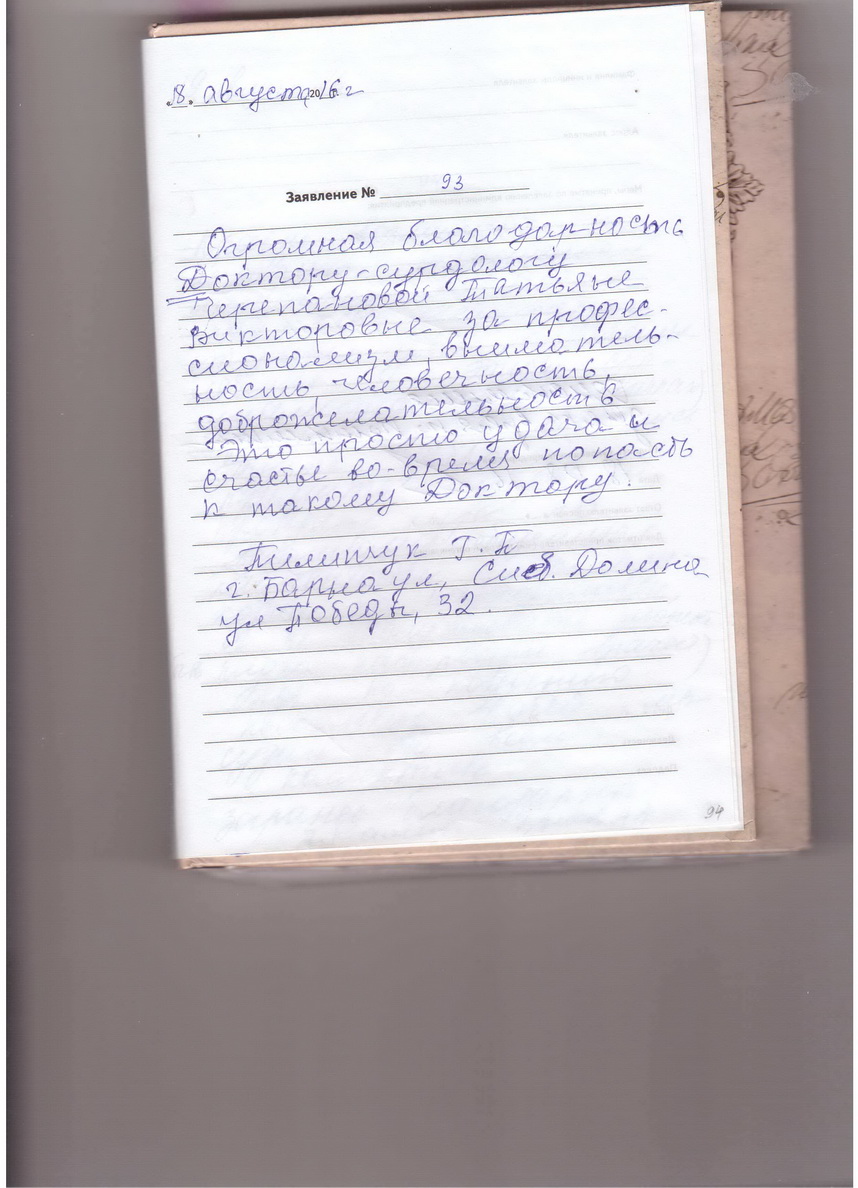 18. августа 2016 г
Заявление № 93
Огромная благодарность
Доктору-сурдологу
Черепановой Татьяне
Викторовне за профес-
сионализм, вниматель-
ность, человечность,
доброжелательность
Это просто удача и
счастье во-время попасть
к такому Доктору.
Пилипчук Г.П
г. Барнаул, Сиб. Долина
ул Победы, 32.
94